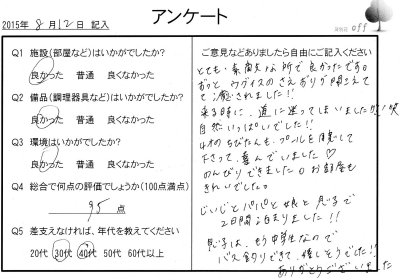 アンケート
2015年 8月 12日 記入
off
Q1 施設(部屋など)はいかがでしたか?
良かった 普通 良くなかった
Q2 備品(調理器具など)はいかがでしたか?
良かった 普通 良くなかった
Q3 環境はいかがでしたか?
良かった 普通 良くなかった
Q4 総合で何点の評価でしょうか(100点満点)
95 点
Q5 差支えなければ、年代を教えてください
20代 30代 40代 50代 60代以上
ご意見などありましたら自由にご記入ください
とても、素敵な所で良かったです。
ずっと、ウグイスのさえずりが聞こえて
て癒されました!!
来る時に、道に迷ってしまいましたが 笑
自然いっぱいでした!!
4才のちびたんも、プールを用意して
下さって、喜んでいました♡
のんびりできました。お部屋も
きれいでした。
じいじとパパと娘と息子で
2日間泊まりました!!
息子は、もう中学生なので
バス釣りできて、嬉しそうでした!!
ありがとうございました